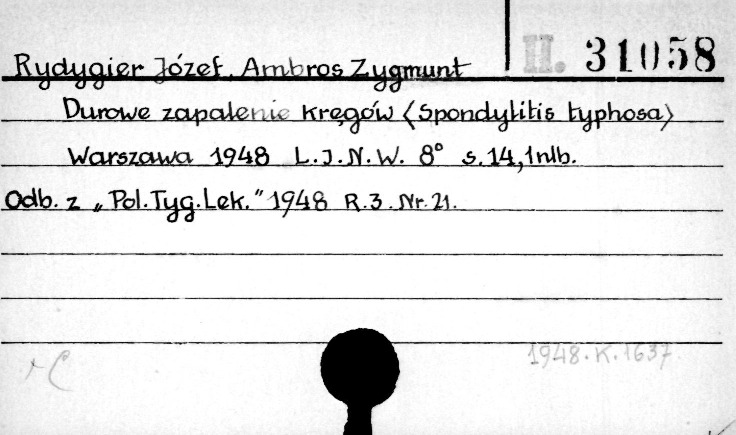 II. 31058
Rydygier Józef, Ambros Zygmunt
Durowe zapalenie kręgów (Spondylitis typhosa)
Warszawa 1948 L.I.N.W. 8° s.14,1nlb.
Odb. z „Pol.Tyg.Lek.” 1948 R.3. Nr.21.
1948.K.1637